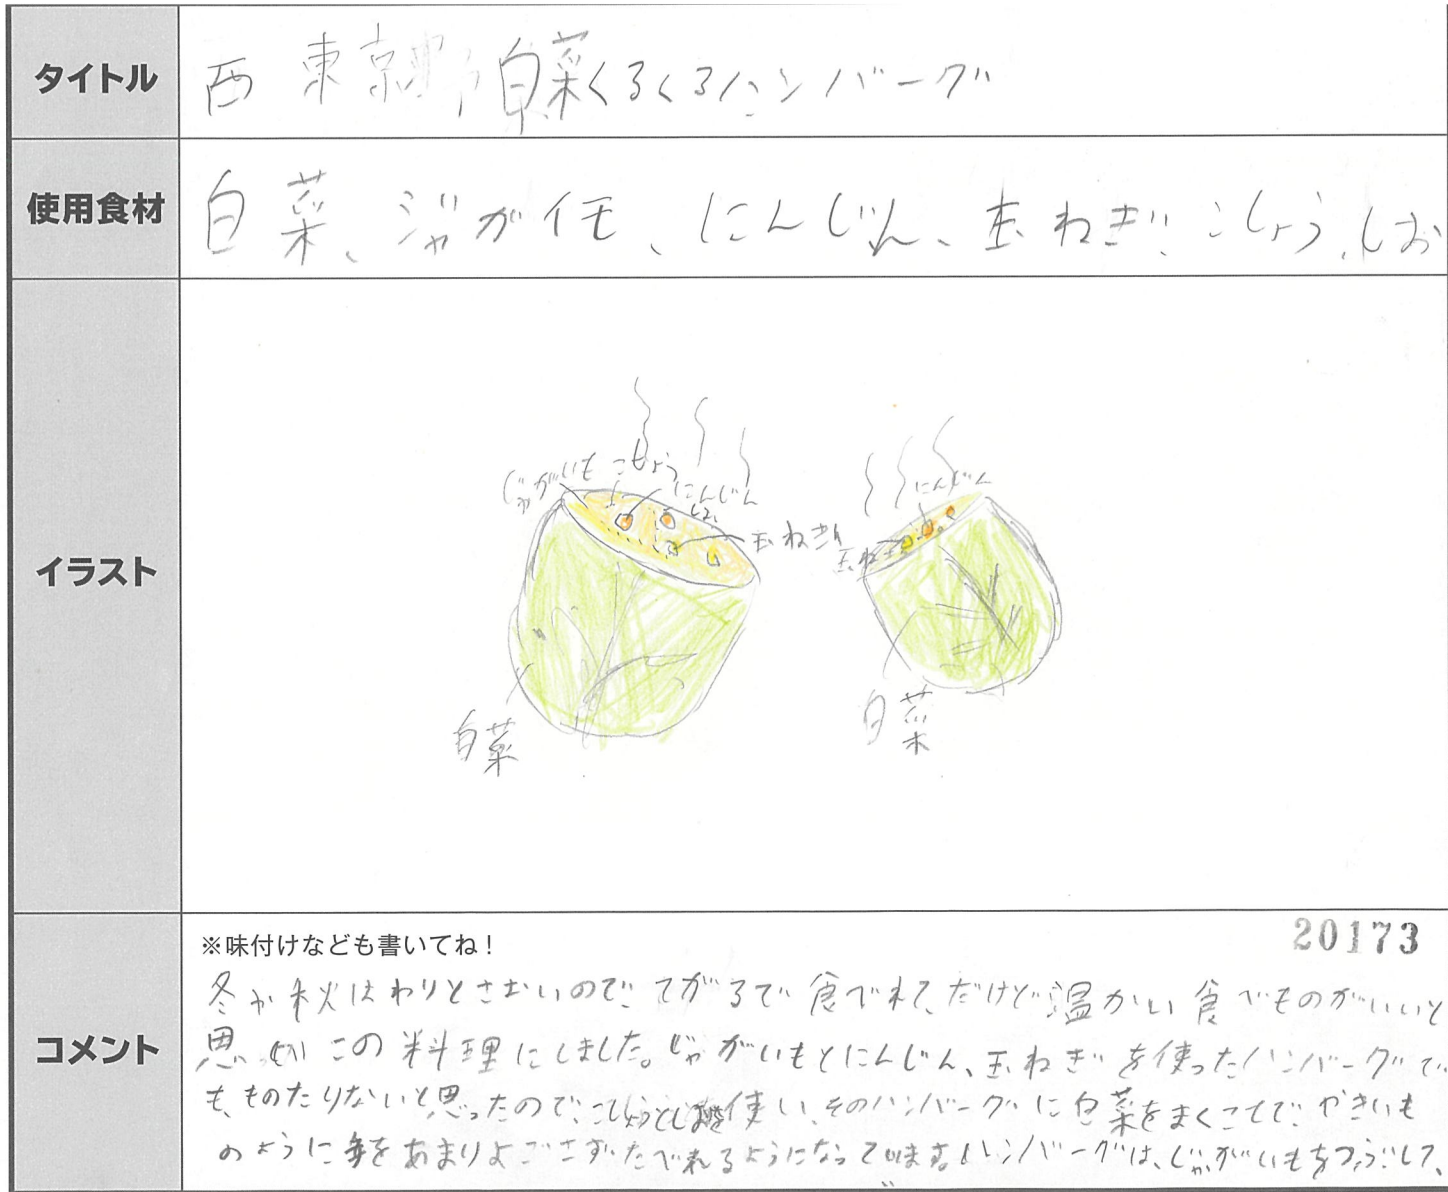 タイトル
西東京 白菜くるくるハンバーグ
使用食材
白菜、ジャガイモ、にんじん、玉ねぎ、こしょう、しお
イラスト
じゃがいも こしょう にんじん
しお
玉ねぎ
白菜
にんじん
玉ねぎ
白菜
コメント
※味付けなども書いてね！
20173
冬か秋はわりとさむいので、てがるで食べれて、だけど温かい食べものがいいと
思い この料理にしました。じゃがいもとにんじん、玉ねぎを使ったハンバーグで
も、ものたりないと思ったので、こしょうとしおを使い、そのハンバーグに白菜をまくことで、やきいも
のように手をあまりよごさずたべれるようになっています。ハンバーグは、じゃがいもをつぶして、